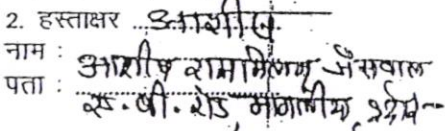 2. हस्ताक्षर .. आशीष
नाम : आशीष रामामिलन जैसवाल
पता : एस. बी. रोड,